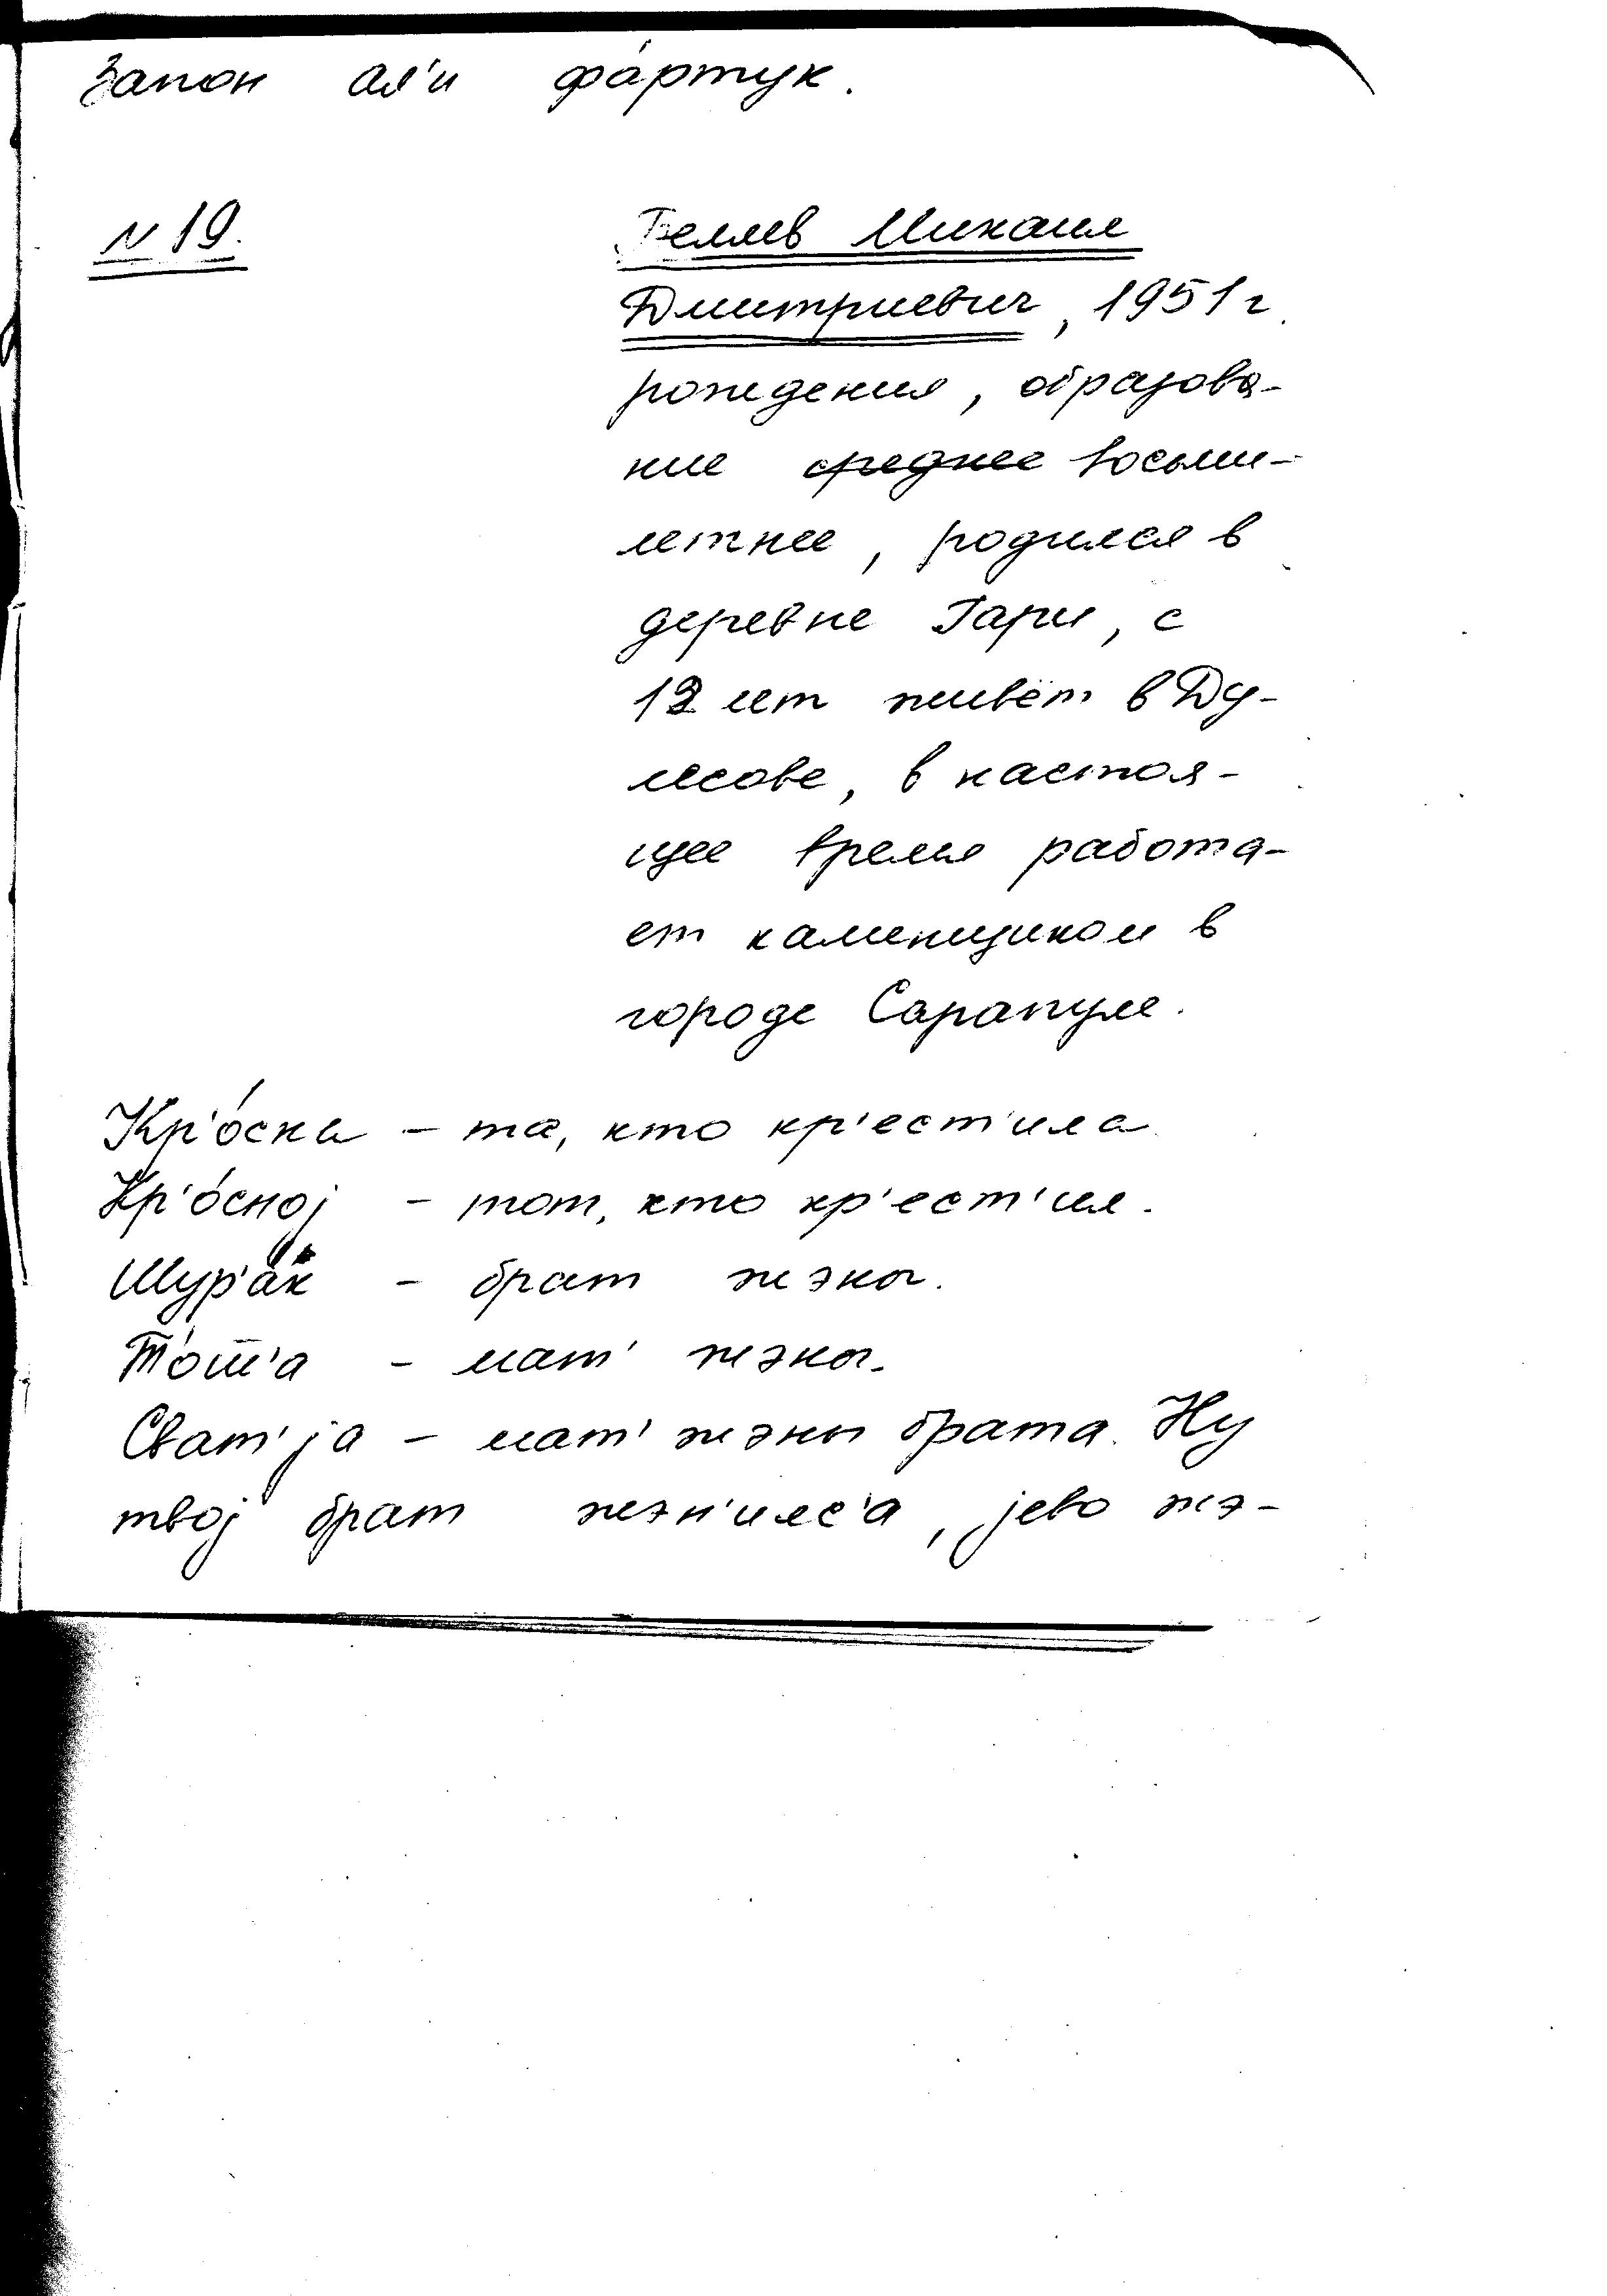 Запон ал'и фа́ртук.
N 19.
Беляев Михаил
Дмитриевич, 1951 г.
рождения, образова-
ние ~~среднее~~ восьми-
летнее, родился в
деревне Гари, с
12 лет живёт в Ду-
лесове, в настоя-
щее время работа-
ет каменщиком в
городе Сарапуле.
Кр'о́сна – та, кто кр'ест'ила.
Кр'о́сној – тот, кто кр'ест'ил.
Шур'а́к – брат жэны.
Т'о́ш'а – мат' жэны.
Сват'ја – мат' жэны брата. Ну
твој брат жэн'илс'а, јево жэ-